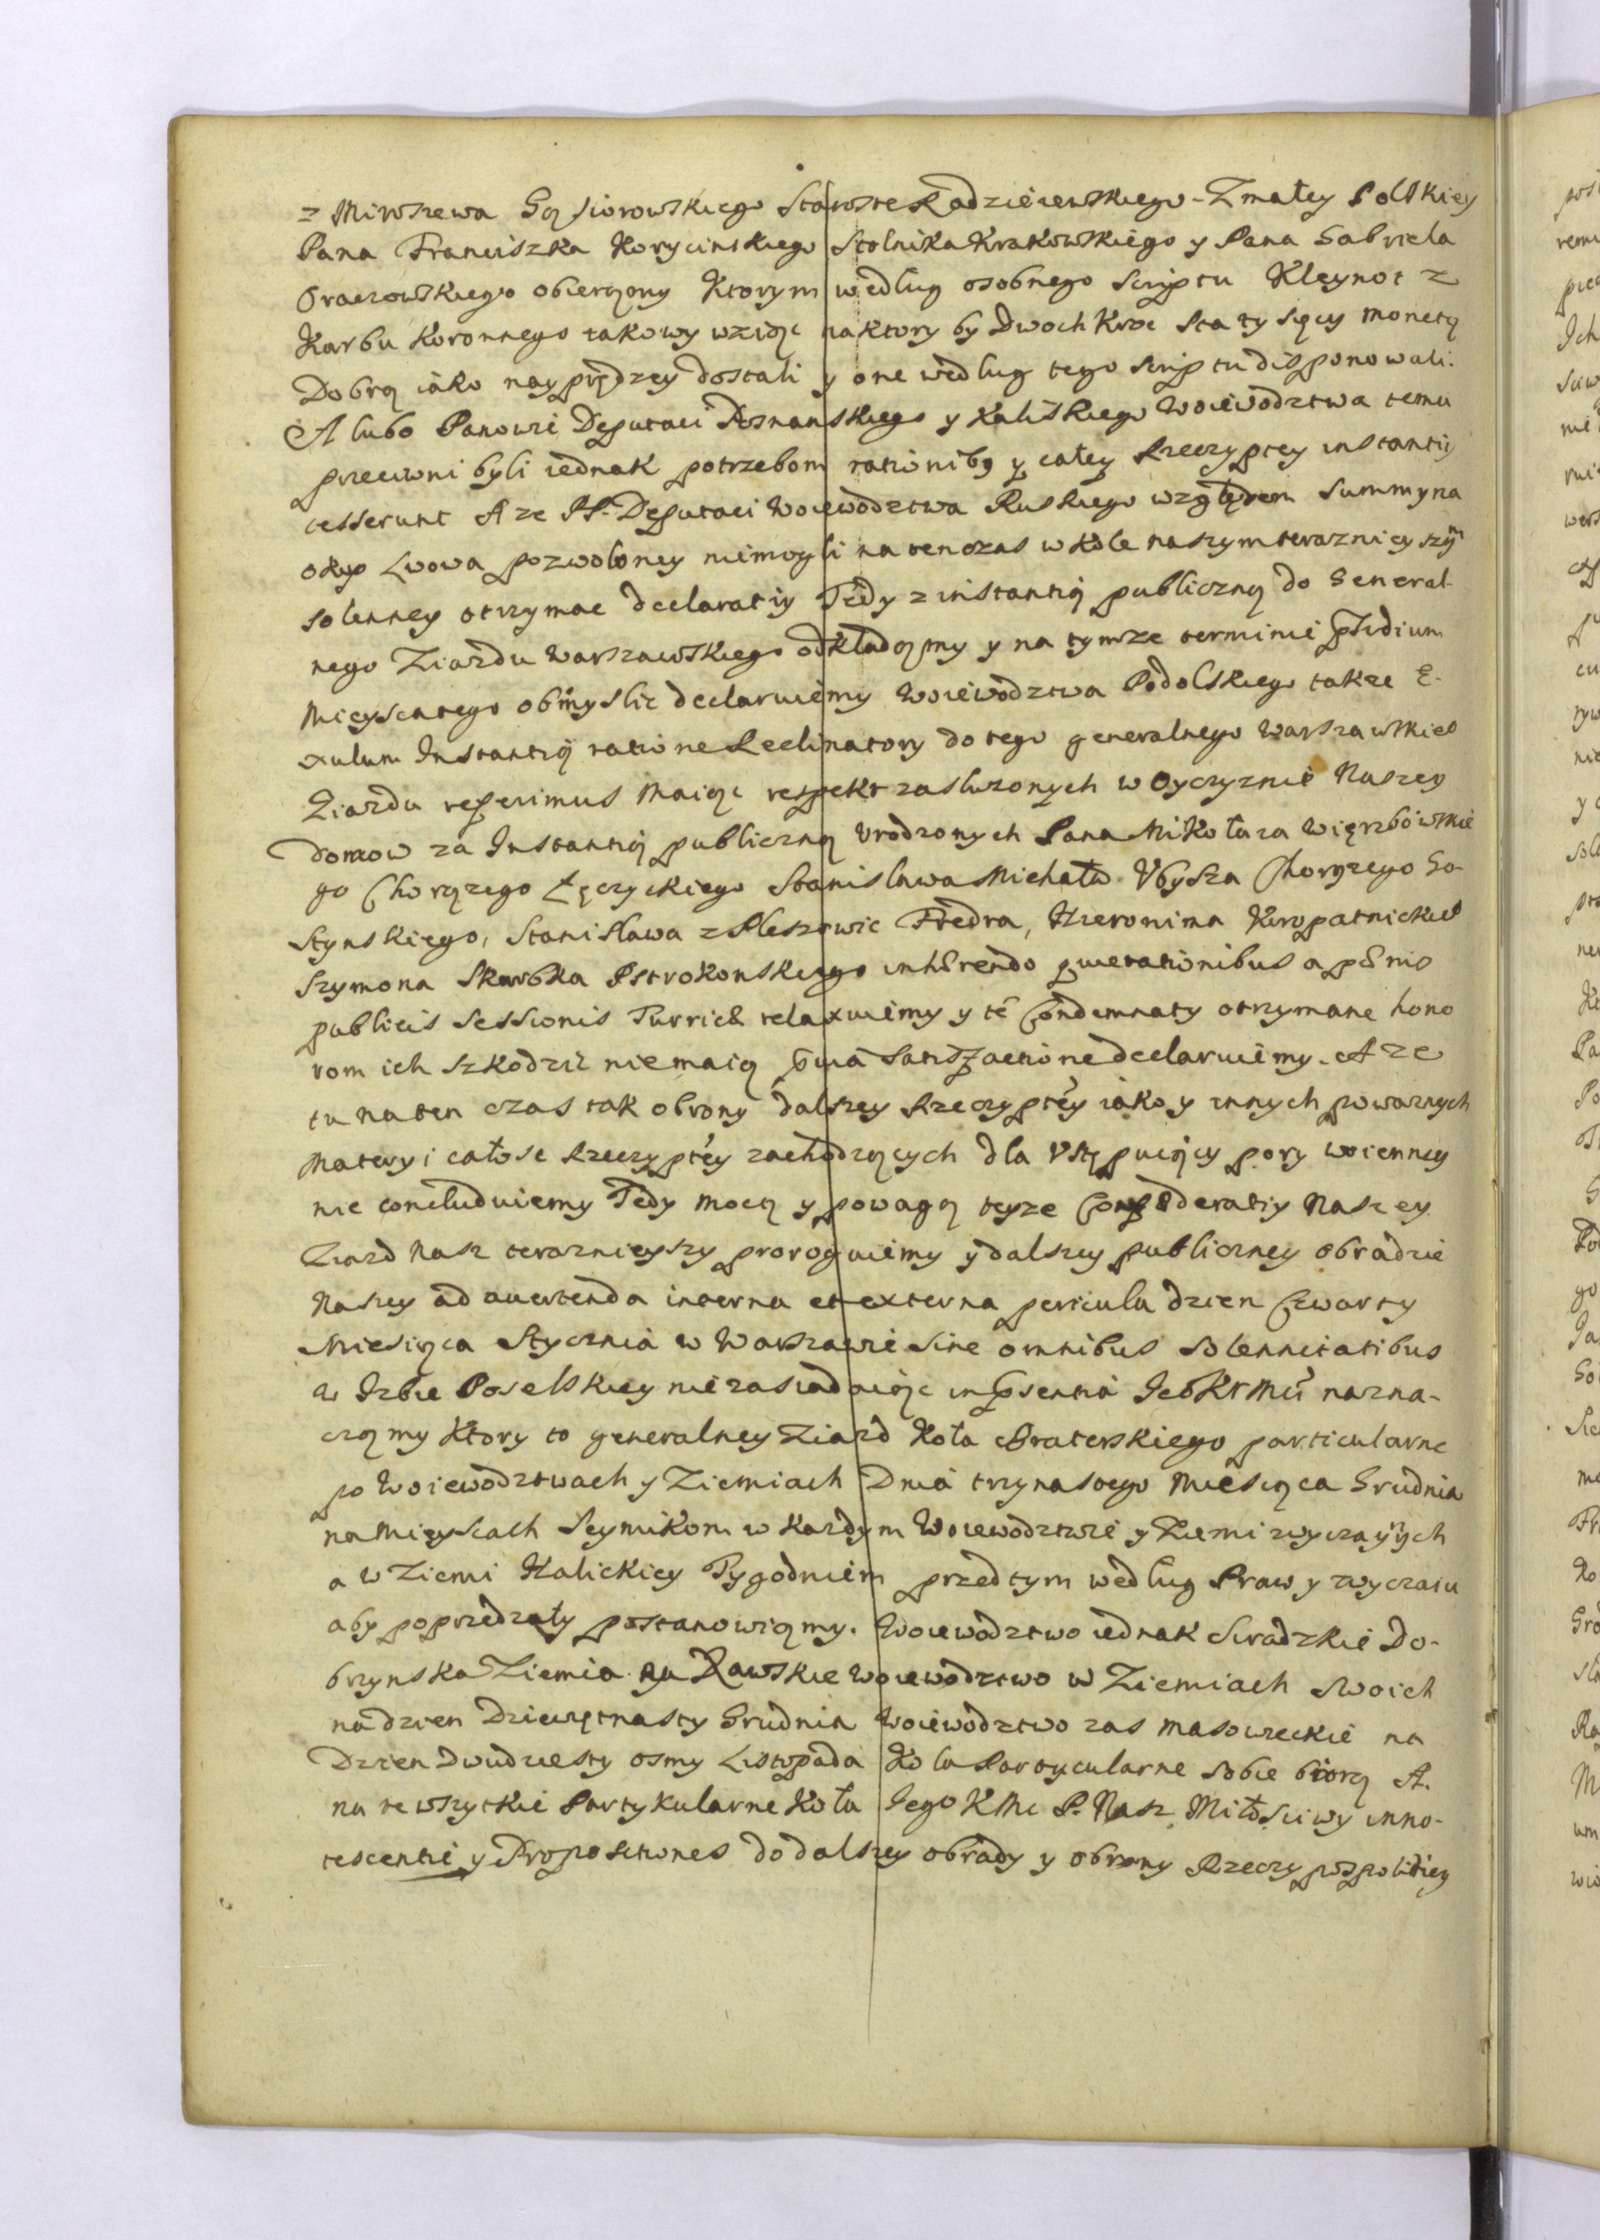 z Mirszewa Gąsiorowskiego Starostę Radzieiewskiego. Z małey Polskiey
Pana Franciszka Korycinskiego Stolnika Krakowskiego y Pana Gabriela
obierzemy Ktorym według osobnego scriptu Kleynot z
Karbu Koronnego takowy wziąc na ktory by Dwoch Kroc sta tysięcy monetą
Dobrą iako nayprędzey dostali y one według tego scriptu disponowali.
A lubo Panowie Deputaci Poznanskiego y Kaliskiego Woiewodztwa temu
przeciwni byli iednak potrzebom rationibꝯ y całey Rzeczyptey instantiy
cesserunt A ze PP. Deputaci Woiewodztwa Ruskiego względem summy na
okup Lwowa pozwoloney niemogli na tenczas w kole naszym teraznieyszym
solenney otrzymac declaratiy Tedy z instantią publiczną do General-
nego Ziazdu Warszawskiego odkładamy y na tymze terminie
Mieysca tego obmyslic declaruiemy Woiewodztwa Podolskiego takze E-
xulum Instantią ratione Reclinatory do tego generalnego Warszawskieo
Ziazdu referimus Maiąc respekt zasłuzonych w Oyczyznie Naszey
domow za Instantią publiczną Urodzonych Pana Mikołaia Więrzbowskie
go Chorązego Łęczyckiego Stanisława Michała Ubysza Chorązego Go-
stynskiego, Stanisława z Pleszowic Fredra, Hieronima Kuropatnickieo
Szymona Skarbka Pstrokonskiego inhærendo quietationibus a pænis
publicis Sessionis Turrick relaxuiemy y te Condemnaty otrzymane hono
rom ich szkodzic niemaią declaruiemy. A ze
tu na ten czas tak obrony dalszey Rzeczyptey iako y innych powaznych
Matery i całosc Rzeczyptey zachodzących dla Ustępuiącey pory woienney
nie concluduiemy Tedy mocą y powagą teyze Confæderatiy Naszey
Ziazd Nasz teraznieyszy proroguiemy y dalszey publiczney obradzie
Naszey ad avertenda interna et externa pericula dzien Czwarty
Miesiąca Stycznia w Warszawie sine omnibus solennitatibus
w Izbie Poselskiey nie zasiadaiąc in Psentia Ieo KrMci nazna-
czamy Ktory to generalney Ziazd Koła Braterskiego particularne
po Woiewodztwach y Ziemiach Dnia trzynastego Miesiąca Grudnia
na Mieyscach Seymikom w Kazdym Woiewodztwie y Ziemi zwyczaynych
a w Ziemi Halickiey Tygodniem przedtym według Praw y zwyczaiu
aby poprzedzały postanowiamy. Woiewodztwo iednak Siradzkie Do-
brzynska Ziemia Rawskie Woiewodztwo w Ziemiach swoich
na dzien Dziewiętnasty Grudnia Woiewodztwo zas Mazowieckie na
Dzien Dwudziesty osmy Listopada Koła Partycularne sobie biorą A.
na te wszytkie Partykularne Koła Iego KMc P. Nasz Miłosciwy inno-
tescentie y Propositiones do dalszey obrady y obrony Rzeczypospolitiey